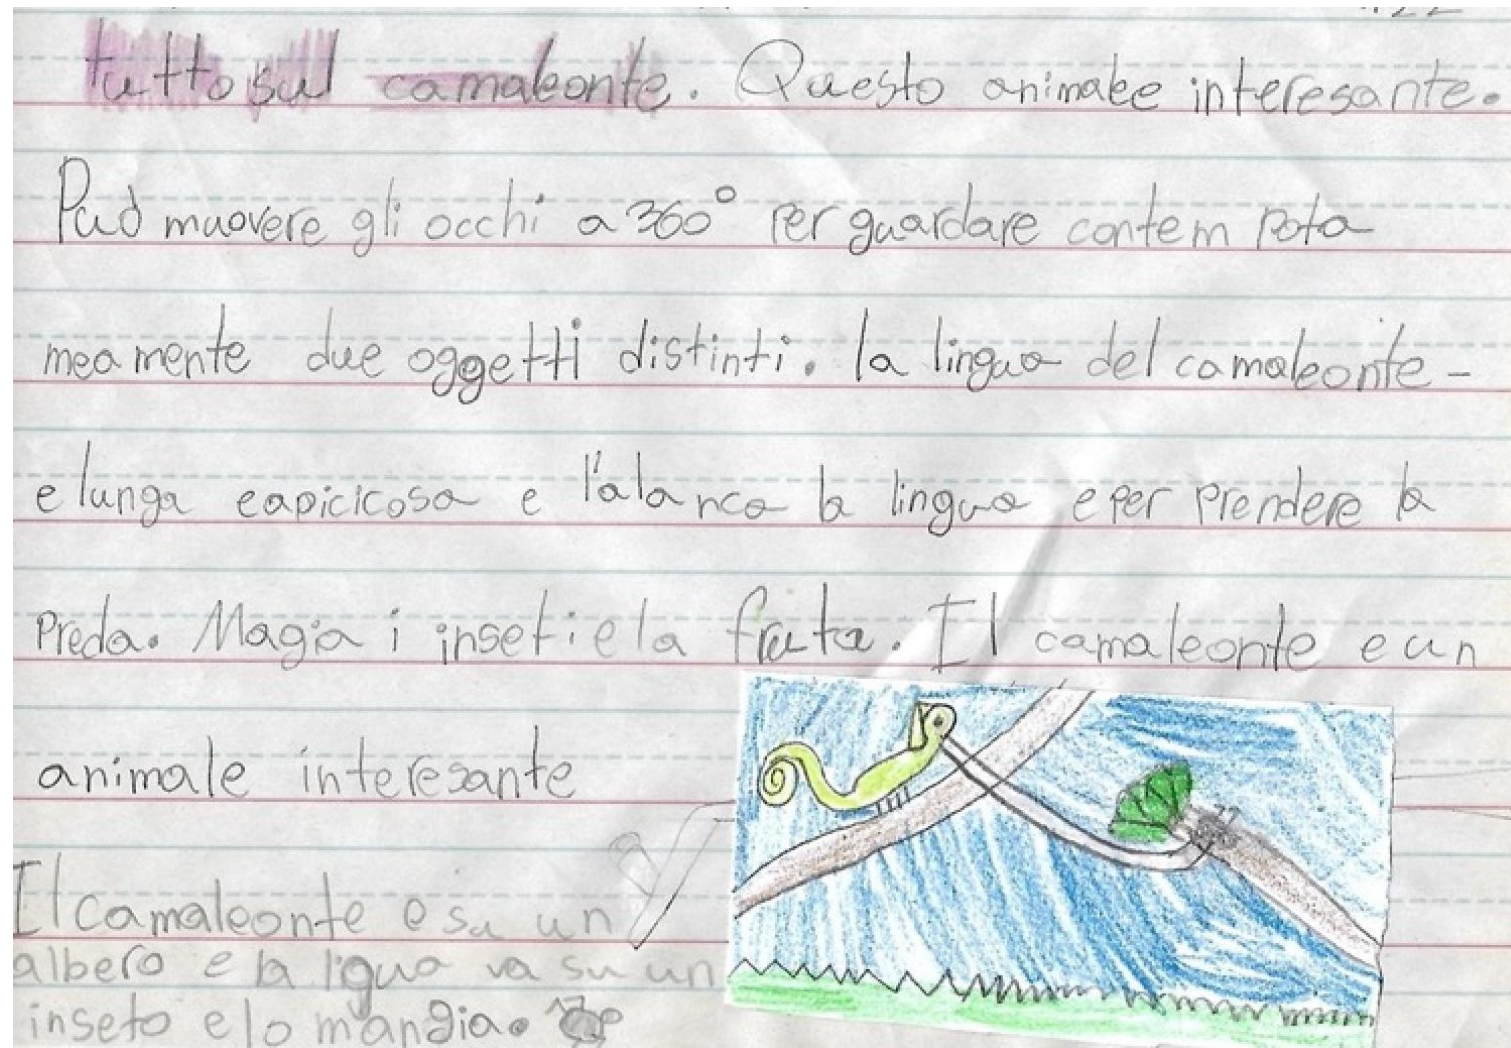 tutto sul camaleonte. Questo animale interesante.
Può muovere gli occhi a 360° per guardare contem pota
meamente due oggetti distinti. la lingua del camaleonte -
e lunga eapicicosa e l'alanca la lingua e per prendere la
preda. Magia i inseti e la fruta. Il camaleonte e un
animale interesante
Il camaleonte e su un
albero e la ligua va su un
inseto e lo mangia.